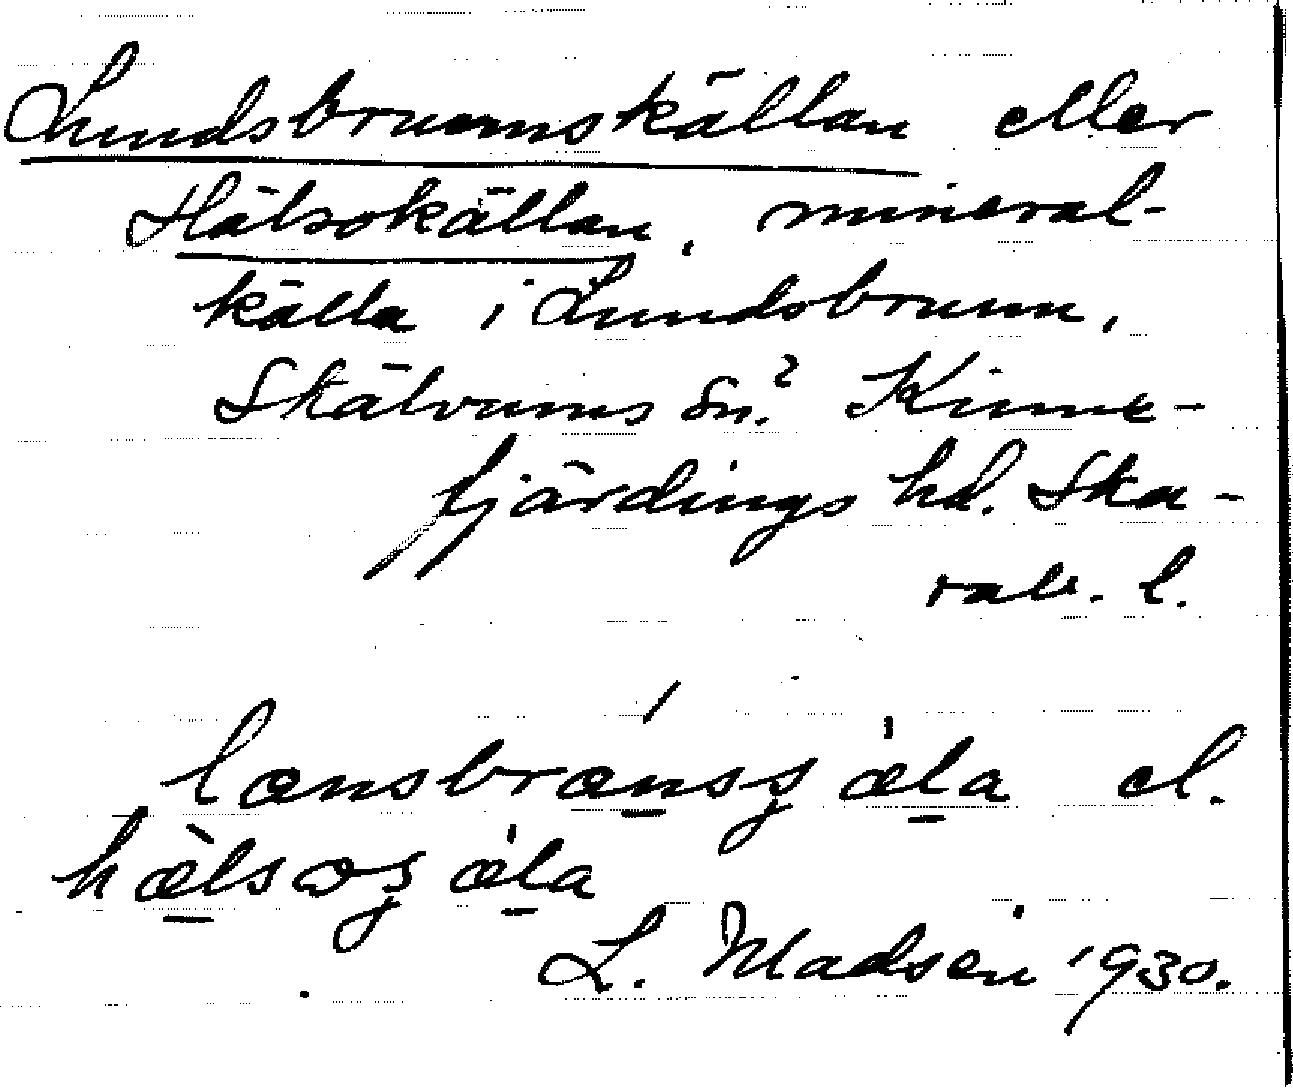 Lundsbrunnskällan eller
Hälsokällan, mineral-
källa i Lundsbrunn,
Skälvums sn.? Kinne-
fjärdings hd. Ska-
rab. l.
el.
L. Madsen 1930.